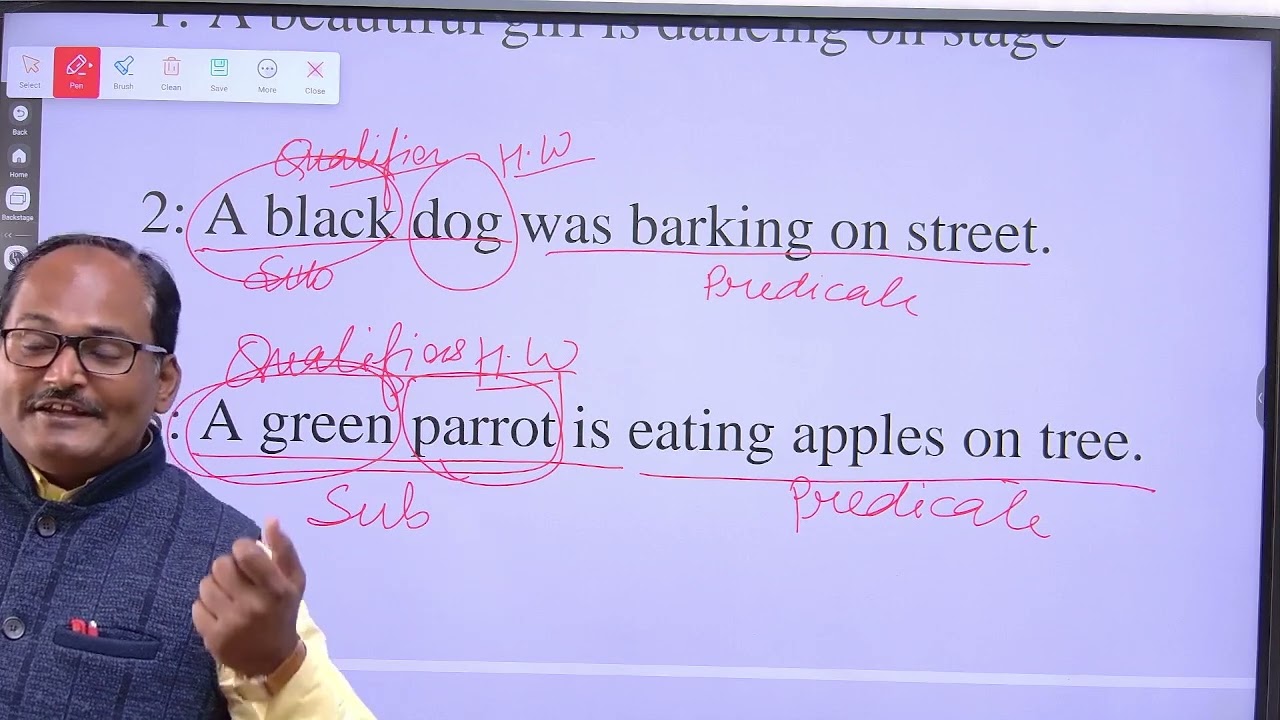 1: A beautiful girl is dancing on stage
Select Pen Brush Clean Save More Close
Back
Home
Backstage
Qualifier H.W
2: A black dog was barking on street.
Sub Predicate
Qualifiers H.W
: A green parrot is eating apples on tree.
Sub Predicate